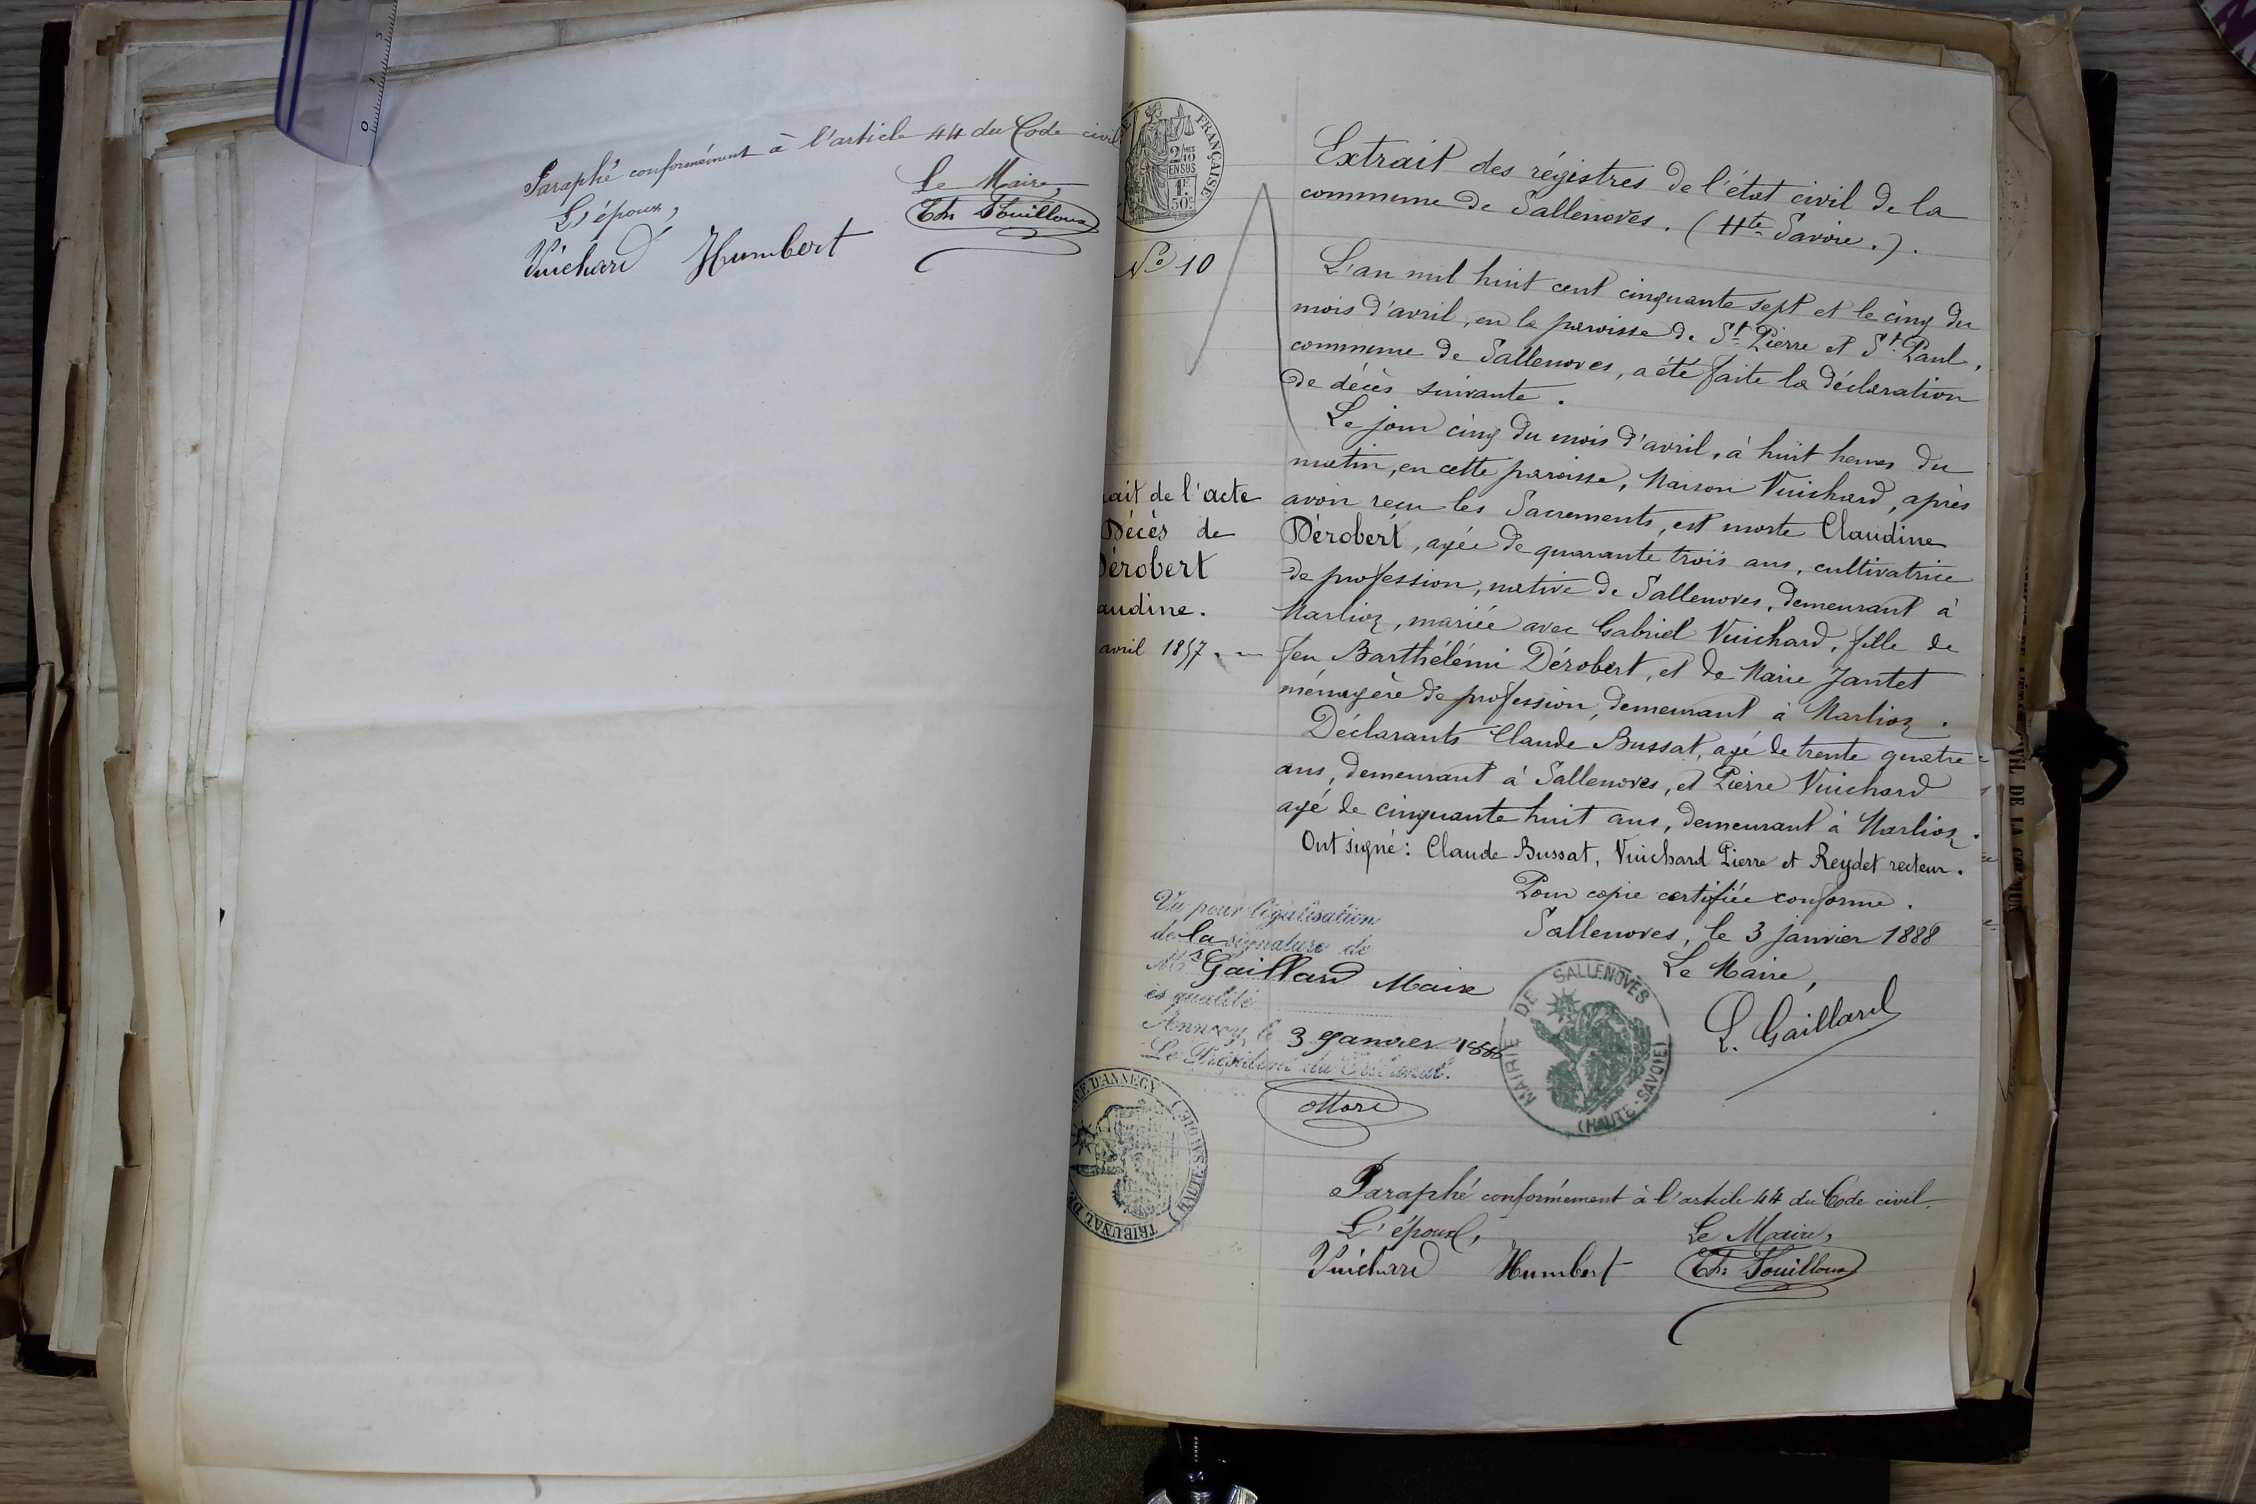 Paraphé conformément à l'article 44 du Code civil
Le Maire,
L'époux,
Th Fouilloux
Vuichard Humbert
FRANÇAISE
2/10
EN SUS
1F
50c
No 10
Extrait des régistres de l'état civil de la
commune de Sallenoves. (Hte Savoie.).
L'an mil huit cent cinquante sept et le cinq du
mois d'avril, en la paroisse de St Pierre et St Paul,
commune de Sallenoves, a été faite la déclaration
de décès suivante.
Le jour cinq du mois d'avril, à huit heures du
matin, en cette paroisse, Maison Vuichard, après
avoir reçu les Sacrements, est morte Claudine
Dérobert, agée de quarante trois ans, cultivatrice
de profession, native de Sallenoves, demeurant à
Marlioz, mariée avec Gabriel Vuichard, fille de
feu Barthélémi Dérobert, et de Marie Jantet
ménagère de profession, demeurant à Marlioz.
Déclarants Claude Bussat, agé de trente quatre
ans, demeurant à Sallenoves, et Pierre Vuichard
agé de cinquante huit ans, demeurant à Marlioz.
Ont signé: Claude Bussat, Vuichard Pierre et Reydet recteur.
Pour copie certifiée conforme.
Sallenoves, le 3 janvier 1888
Le Maire,
L. Gaillard
ait de l'acte
Décès de
Dérobert
audine.
avril 1857.
Vu pour légalisation
de la signature de
Mr Gaillard Maire
ès qualité
Annecy, le 3 Janvier 1888
Le Président du Tribunal.
MAIRIE DE SALLENOVES
(HAUTE-SAVOIE)
CE D'ANNECY
(HAUTE-SAVOIE)
TRIBUNAL D
Paraphé conformément à l'article 44 du Code civil.
L'époux,
Le Maire,
Vuichard Humbert
Th Fouilloux